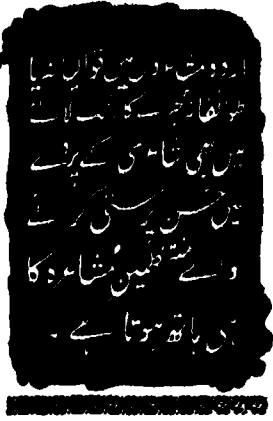 اردو مشاعروں میں قوالی نہ یا
طوائفانہ مجرے کا
ہیں ہی شاعری کے پردے
میں حسن پرستی کرنے
والے منتظمین مشاعرہ کا
ہی ہاتھ ہوتا ہے ۔